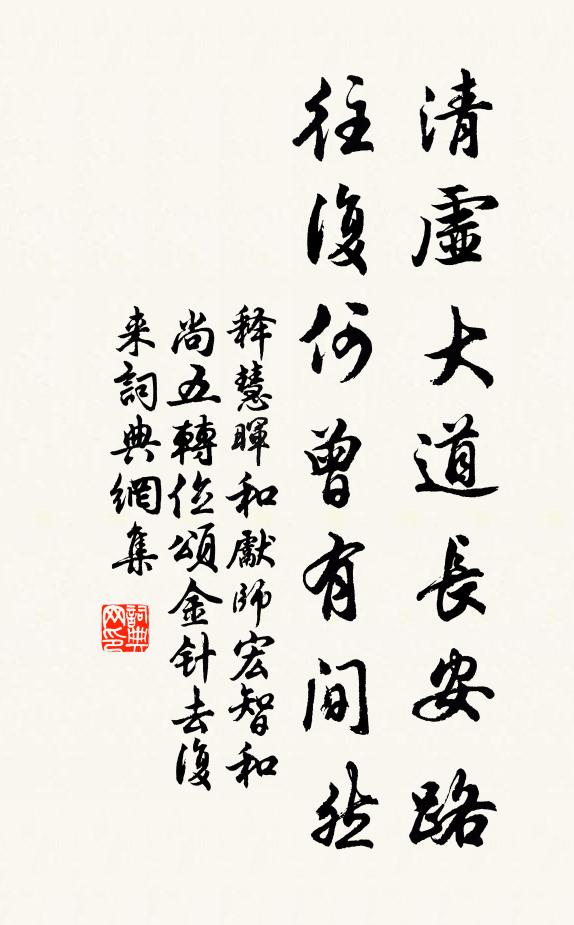 清虛大道長安路
往復何曾有間然
释慧暉和獻師宏智和
尚五轉位頌金针去復
来詞典網集
詞典网印